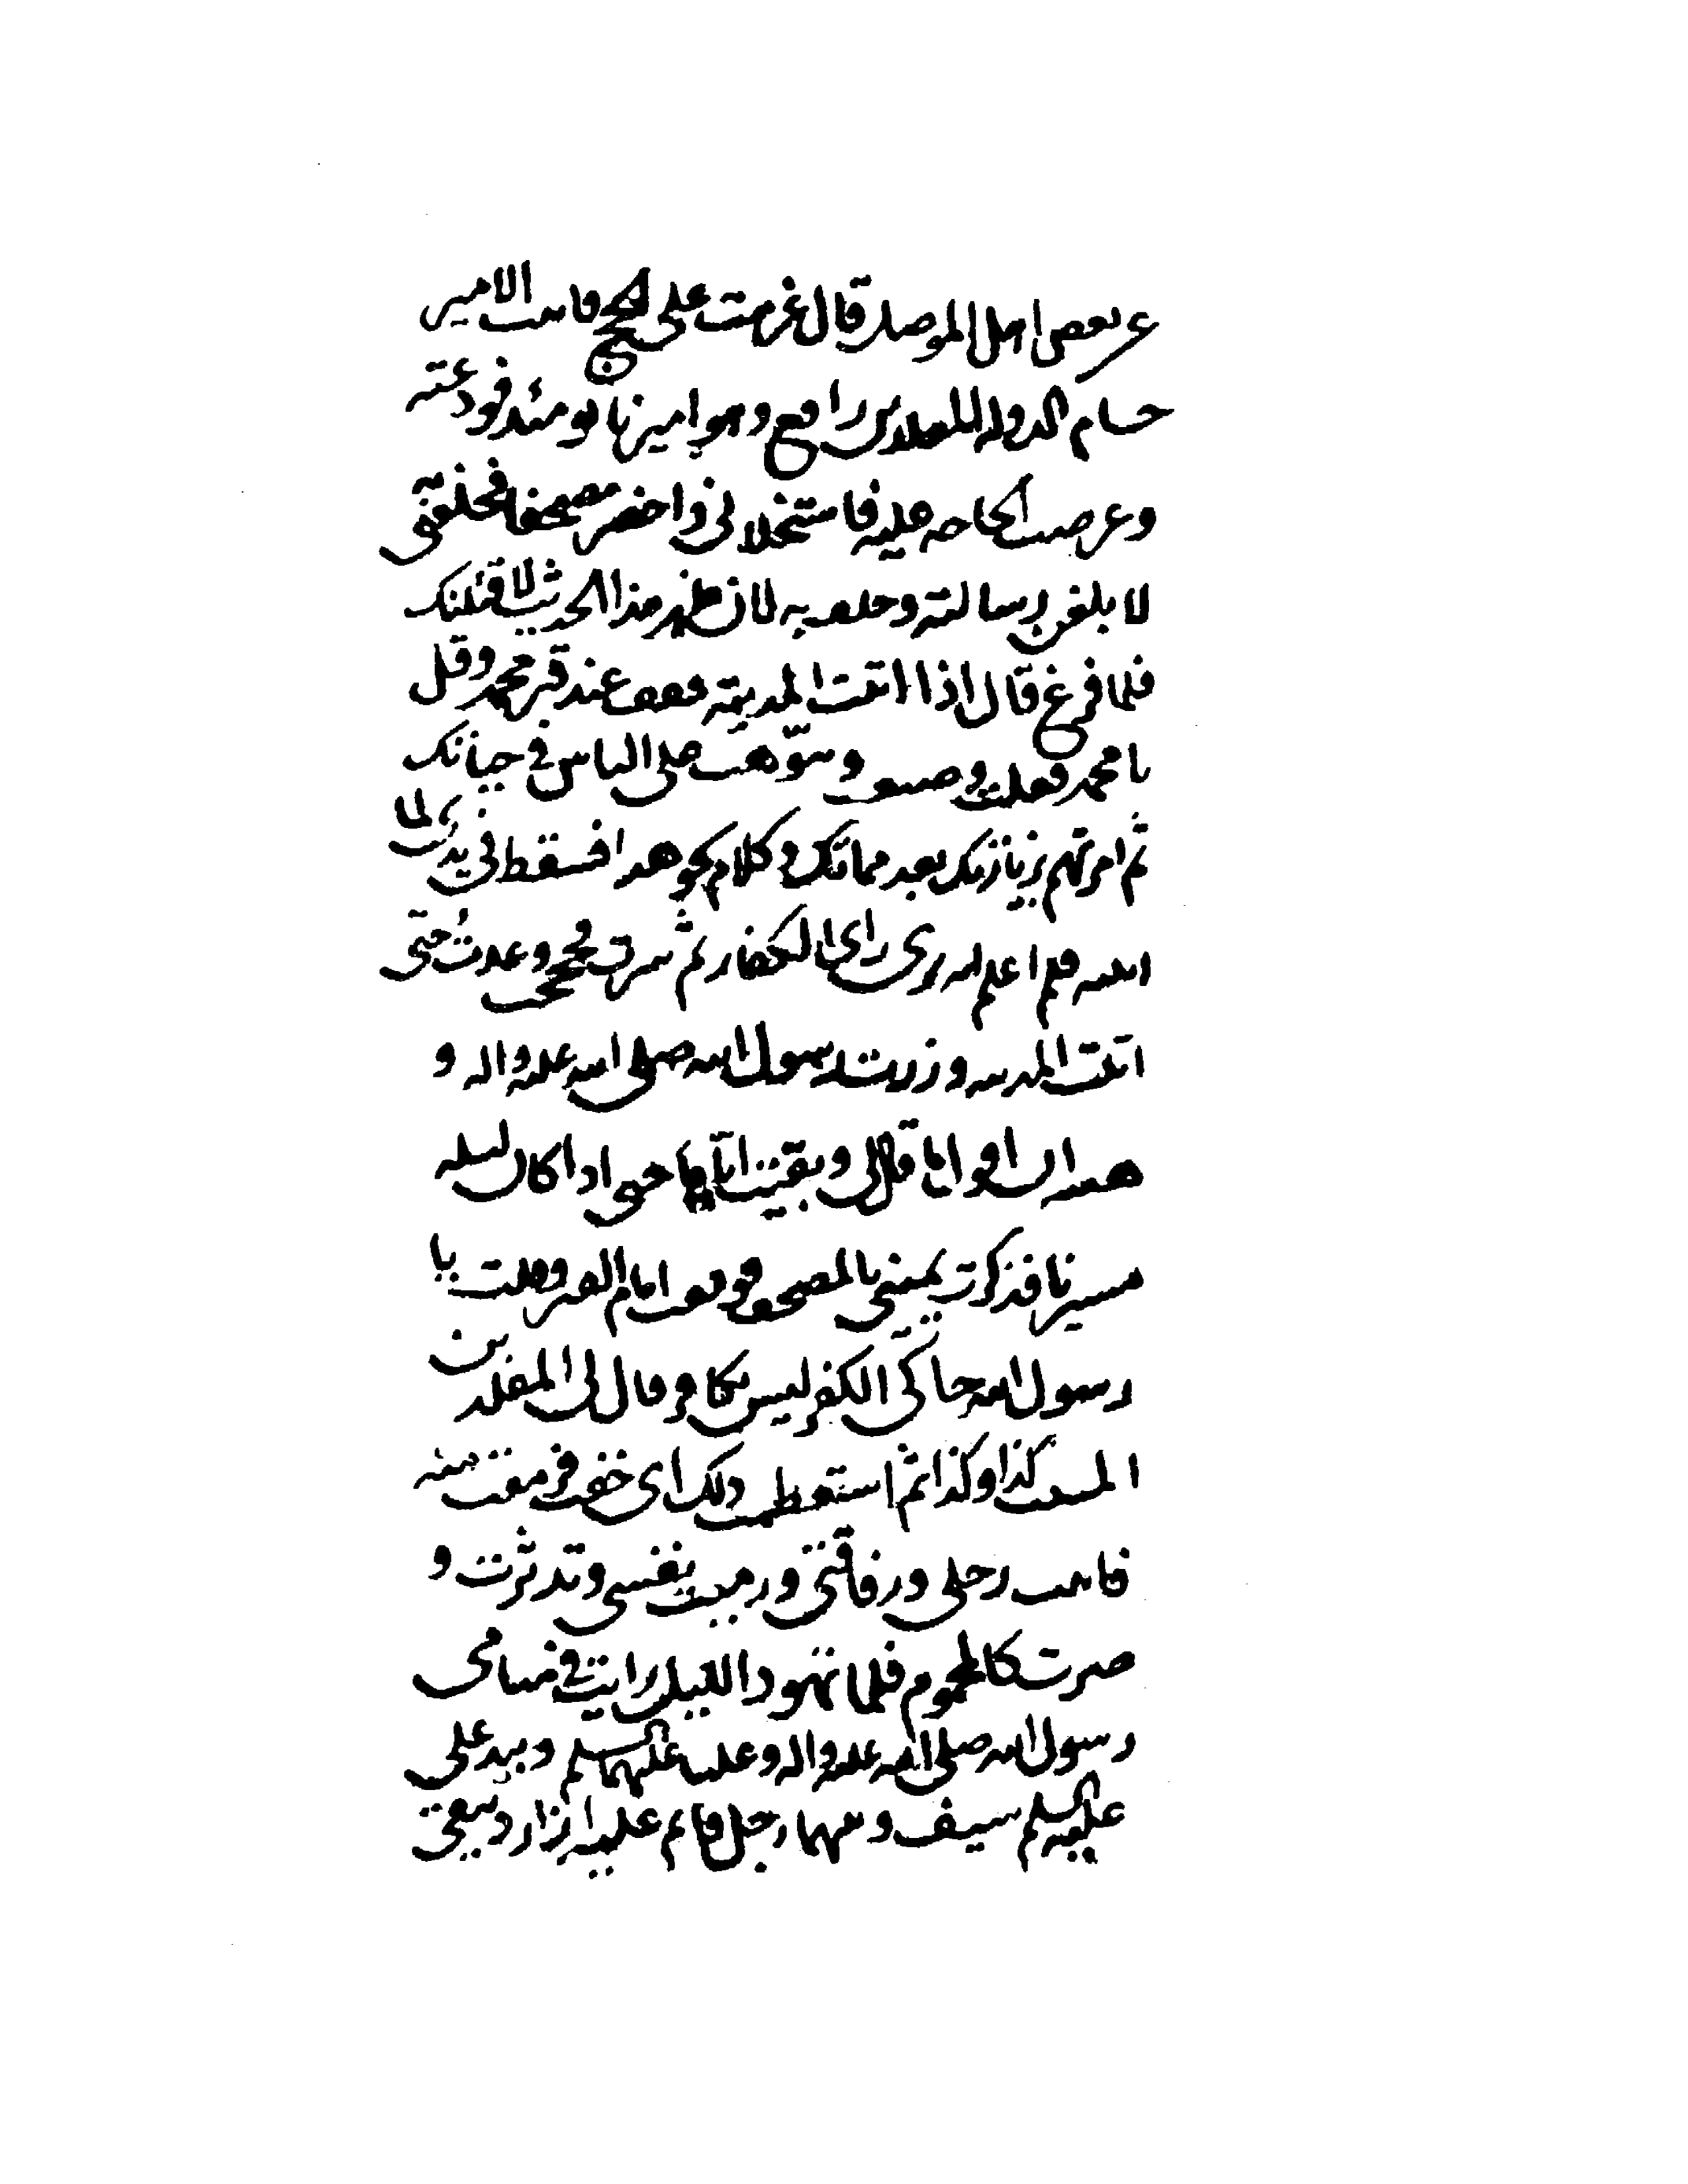 عن بعض اهل الموصل قال عزمت على الحج فاتيت الامير
حسام الدولة المقلد بن رافع وهو اميرنا يومئذ فودعته
وعرضت الحاجه عليه فاستخلا بي واحضر مصحفا فحلفني
لابلغن رسالته وحلف به لان ظهر هذا الحديث لاقتلنك
فلما فرغ قال اذا اتيت المدينة فقف عند قبر محمد وقل
يا محمد فعلت وصنعت وموهت على الناس في حياتك
ثم امرتهم بزيارتك بعد مماتك وكلام نحو هذا فسقط في يدي لما
اتيته فلم اعلم انه يرى راي الكفار ثم سرت فحججت وعدت حتى
اتيت المدينه وزرت رسول الله صلى الله عليه واله و
هبت ان اقول ما قال لي وبقيت اياما حتى اذا كان ليله
مسيرنا فذكرت يميني بالمصحف فوقفت امام القبر وقلت يا
رسول الله حاكي الكفر ليس بكافر قال لي المقلد بن
المسيب كذا وكذا ثم استعظمت ذلك اي خفت فرقعت منه
فاتيت رحلي ورفاقتي ورميت بنفسي وتدثرت و
صرت كالمحموم فلما تهود الليل رايت في منامي
رسول الله صلى الله عليه واله وعليا عليهما السلم وبيد علي
عليه السلم سيف وبينهما رجل قائم عليه ازار دبيقي